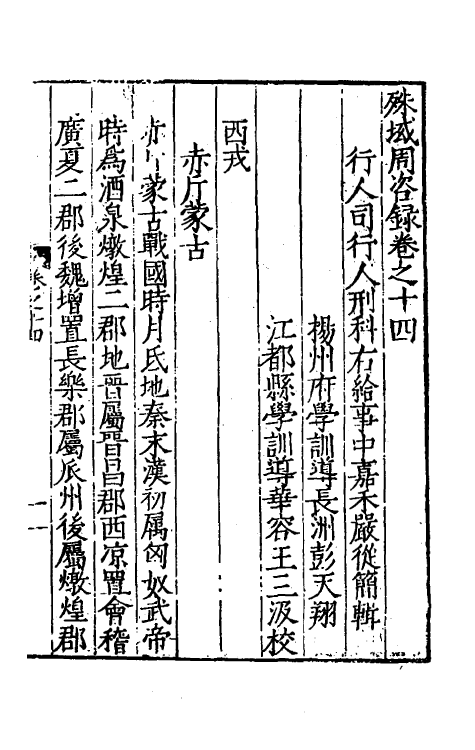 殊域周咨録卷之十四
行人司行人刑科右給事中嘉禾嚴從簡輯
揚州府學訓導長洲彭天翔
江都縣學訓導華容王三汲校
西戎
赤斤蒙古
赤斤蒙古戰國時月氏地秦末漢初属匈奴武帝
時為酒泉燉煌二郡地晋屬晋昌郡西凉置會稽
廣夏二郡後魏增置長樂郡屬瓜州後屬燉煌郡
卷之十四
一